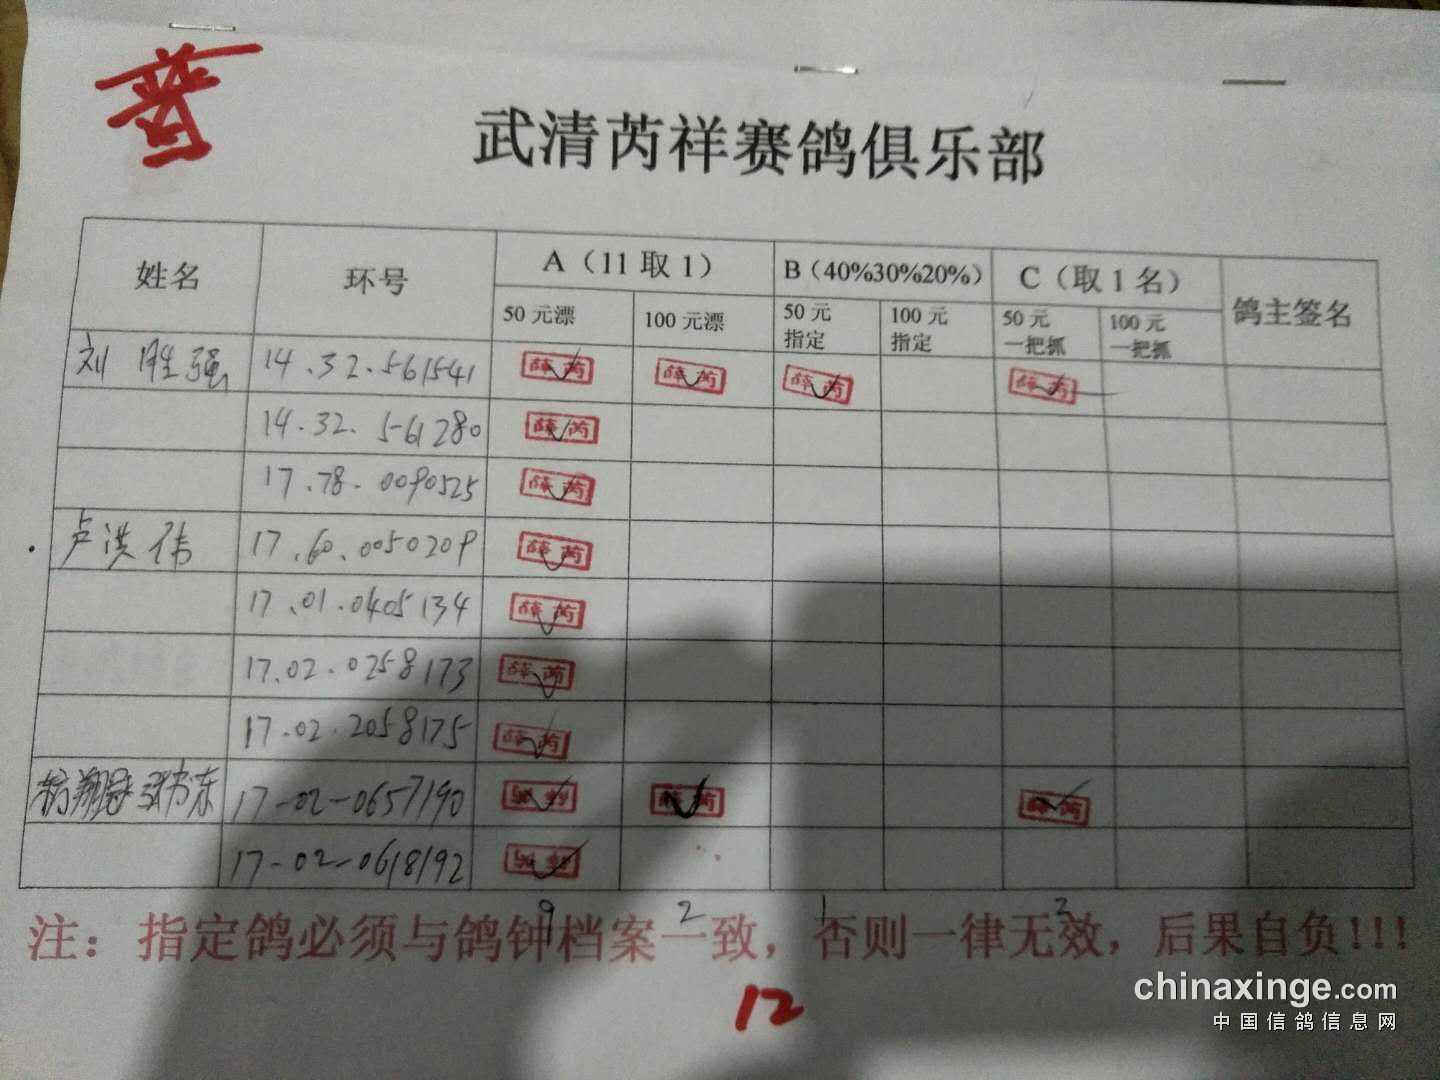 武清芮祥赛鸽俱乐部
姓名 环号 A（11取1） B（40%30%20%） C（取1名） 鸽主签名
50元漂 100元漂 50元指定 100元指定 50元一把抓 100元一把抓
刘胜强 14.32.561541 薛芮 薛芮 薛芮 薛芮
14.32.561280 薛芮
17.78.0090525 薛芮
卢洪伟 17.60.0050209 薛芮
17.01.0405134 薛芮
17.02.0258173 薛芮
17.02.2058175 薛芮
17-02-0657190 薛芮 薛芮
17-02-0618192
9 2 1 2
注：指定鸽必须与鸽钟档案一致，否则一律无效，后果自负!!!
12
chinaxinge.com
中国信鸽信息网